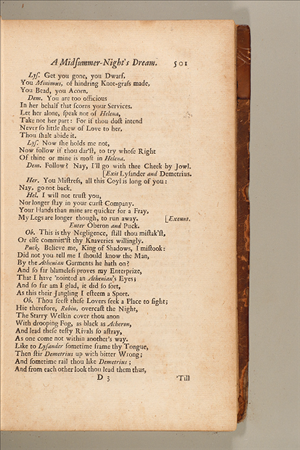 A Midsummer-Night's Dream. 501
Lys. Get you gone, you Dwarf.
You Minimus, of hindring Knot-grass made,
You Bead, you Acorn.
Dem. You are too officious
In her behalf that scorns your Services.
Let her alone, speak not of Helena,
Take not her part: For if thou dost intend
Never so little shew of Love to her,
Thou shalt abide it.
Lys. Now she holds me not,
Now follow if thou dar'st, to try whose Right
Of thine or mine is most in Helena.
Dem. Follow! Nay, I'll go with thee Cheek by Jowl.
[Exit Lysander and Demetrius.
Her. You Mistress, all this Coyl is long of you:
Nay, go not back.
Hel. I will not trust you,
Nor longer stay in your curst Company.
Your Hands than mine are quicker for a Fray,
My Legs are longer though, to run away. [Exeunt.
Enter Oberon and Puck.
Ob. This is thy Negligence, still thou mistak'st,
Or else committ'st thy Knaveries willingly.
Puck. Believe me, King of Shadows, I mistook:
Did not you tell me I should know the Man,
By the Athenian Garments he hath on?
And so far blameless proves my Enterprize,
That I have 'nointed an Athenian's Eyes;
And so far am I glad, it did so sort,
As this their Jangling I esteem a Sport.
Ob. Thou seest these Lovers seek a Place to fight;
Hie therefore, Robin, overcast the Night,
The Starry Welkin cover thou anon
With drooping Fog, as black as Acheron,
And lead these testy Rivals so astray,
As one come not within another's way.
Like to Lysander sometime frame thy Tongue,
Then stir Demetrius up with bitter Wrong;
And sometime rail thou like Demetrius;
And from each other look thou lead them thus,
D 3 'Till